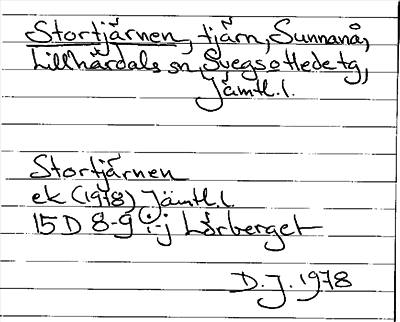 Stortjärnen, tjärn, Sunnanå,
Lillhärdals sn, Svegs o Hede tg,
Jämtl. l.
Stortjärnen
ek (1978) Jämtl. l.
15 D 8-9 i-j Lårberget
D. J. 1978